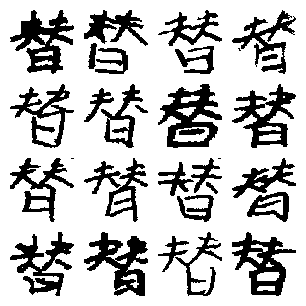 替替替替
替替替替
替替替替
替替替替